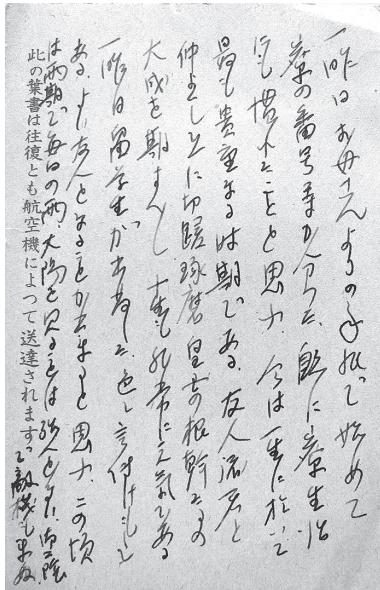 一昨日お母さんよりの手紙で始めて
寮の番号等が分つた、既に寮生活
にも慣れたことと思ふ、今は一生に於いて
最も貴重なる時期である、友人諸君と
仲よくし互に切磋琢磨皇古の根幹たるの
大成を期すべし、予も非常に元気である
一昨日留学生が出発した、色々言付けもして
ある、よい友人となることが出来ると思ふ、この頃
は雨期で毎日の雨、太陽を見ることは殆んどない、御蔭
で敵機も来ぬ
此の葉書は往復とも航空機によつて送達されます